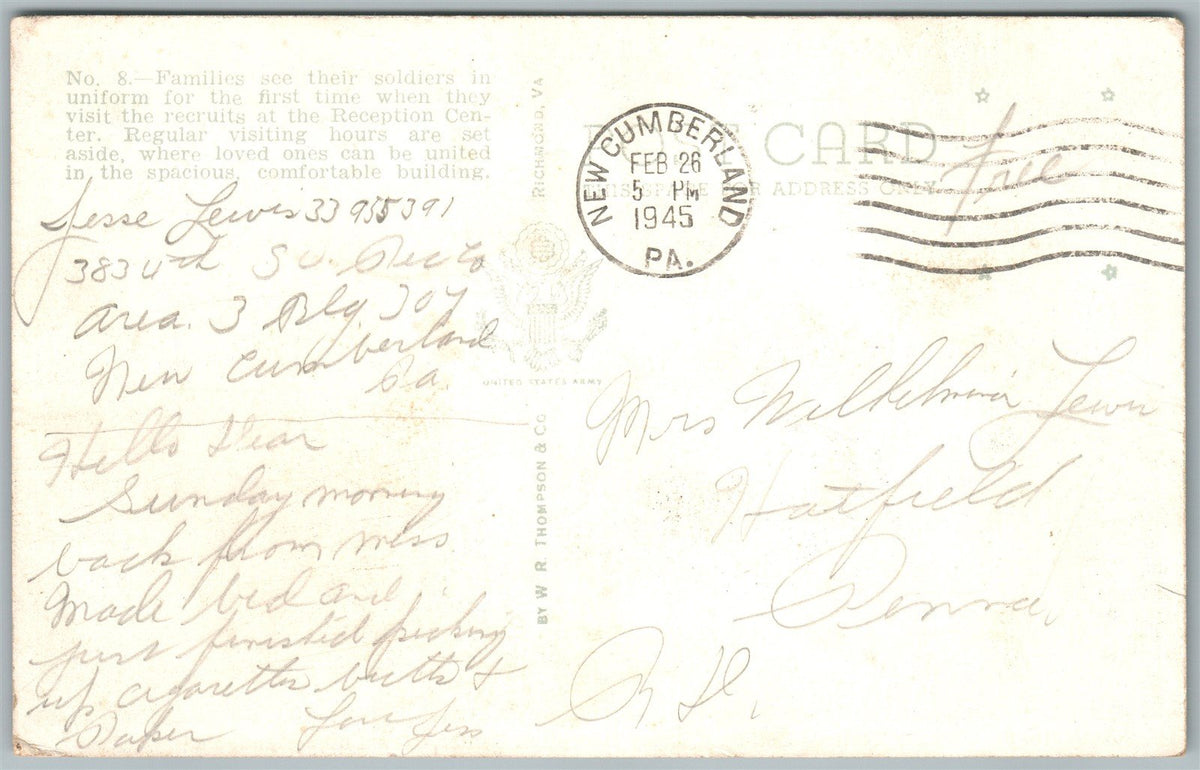 No. 8.—Families see their soldiers in
uniform for the first time when they
visit the recruits at the Reception Cen-
ter. Regular visiting hours are set
aside, where loved ones can be united
in the spacious, comfortable building.
Jesse Lewis 33955391
383
Area. 3 Blg. 307
New Cumberland
Pa.
Hello Dear
Sunday morning
back from mess
Made bed and
just finished picking
up cigarettes butts &
Paper Love Jess
RICHMOND, VA
BY W. R. THOMPSON & CO
UNITED STATES ARMY
POST CARD
THIS SPACE FOR ADDRESS ONLY
NEW CUMBERLAND
FEB 26
5 PM
1945
PA.
Free
Mrs Wilhelmina Lewis
Hatfield
Penna.
R D.